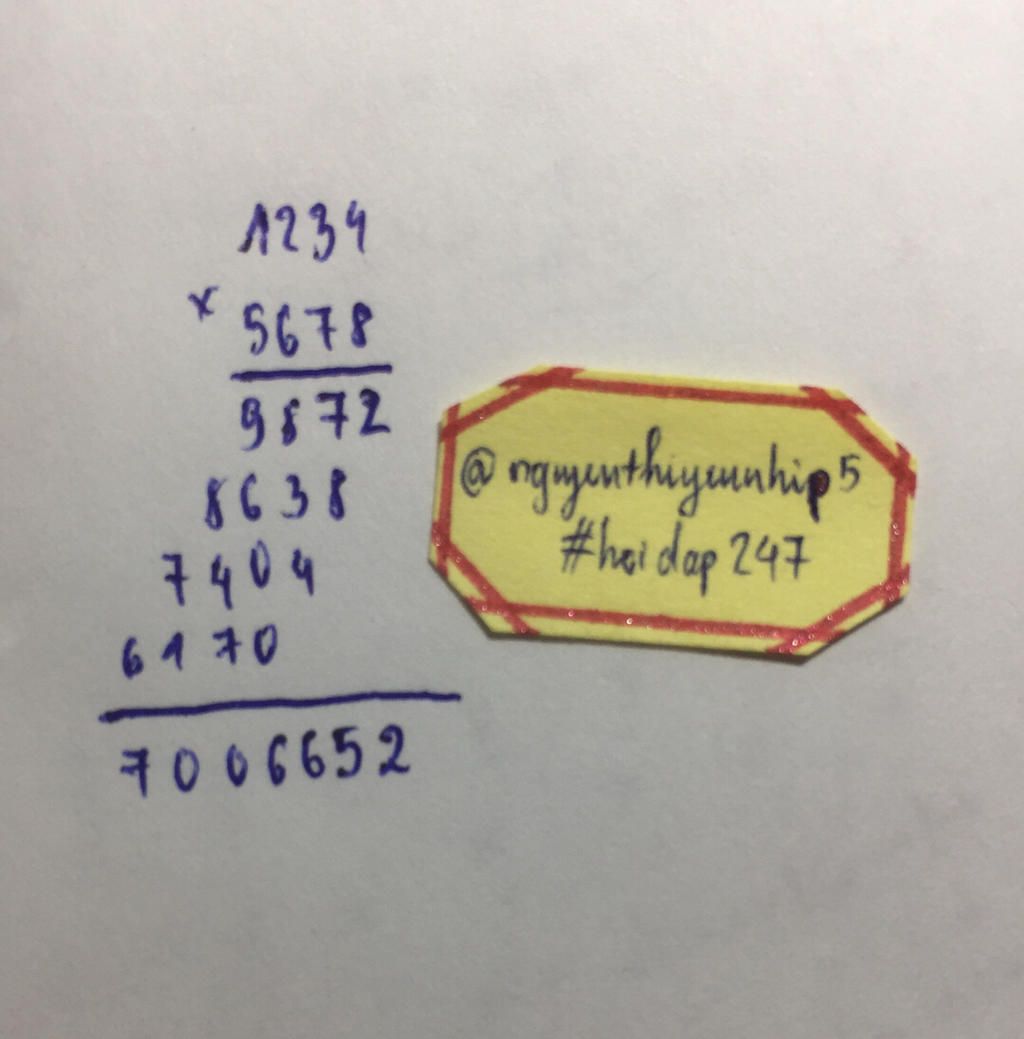 1234
x
5678
9872
8638
7404
6170
7006652
@nguyenthiyeunhip5
#hoidap247